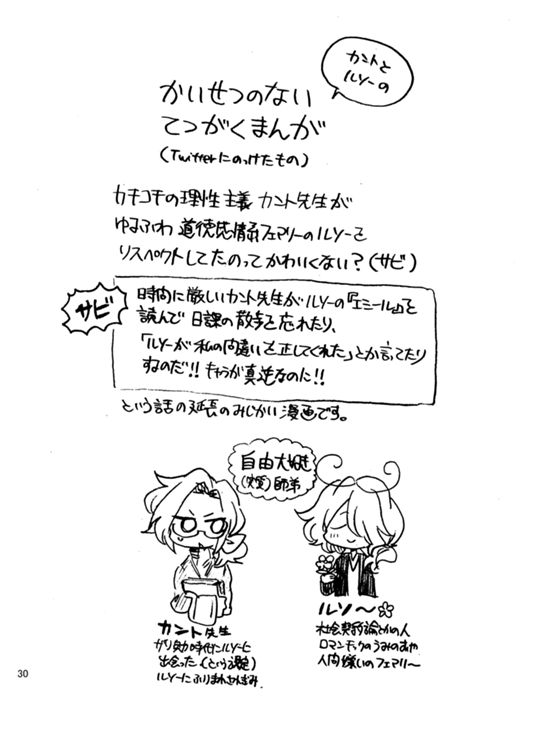 カントと
ルソーの
かいせつのない
てつがくまんが
(Twitterにのっけたもの)
カチコチの理性主義 カント先生が
ゆるふわ 道徳感情フェアリーのルソーを
リスペクトしてたのってかわいくない?(サビ)
サビ
時間に厳しいカント先生がルソーの『エミール』を
読んで 日課の散歩を忘れたり、
「ルソーが私の間違いを正してくれた」とか言ってたり
するのだ!! キャラが真逆なのに!!
という話の延長のみじかい漫画です。
自由大好き
師弟
カント先生
ガリ勉時代にルソーと
出会った(という設定)
ルソーにふりまわされ
ルソ〜
社会契約論とかの人
ロマンチックのうみのおや
人間嫌いのフェアリ〜
30